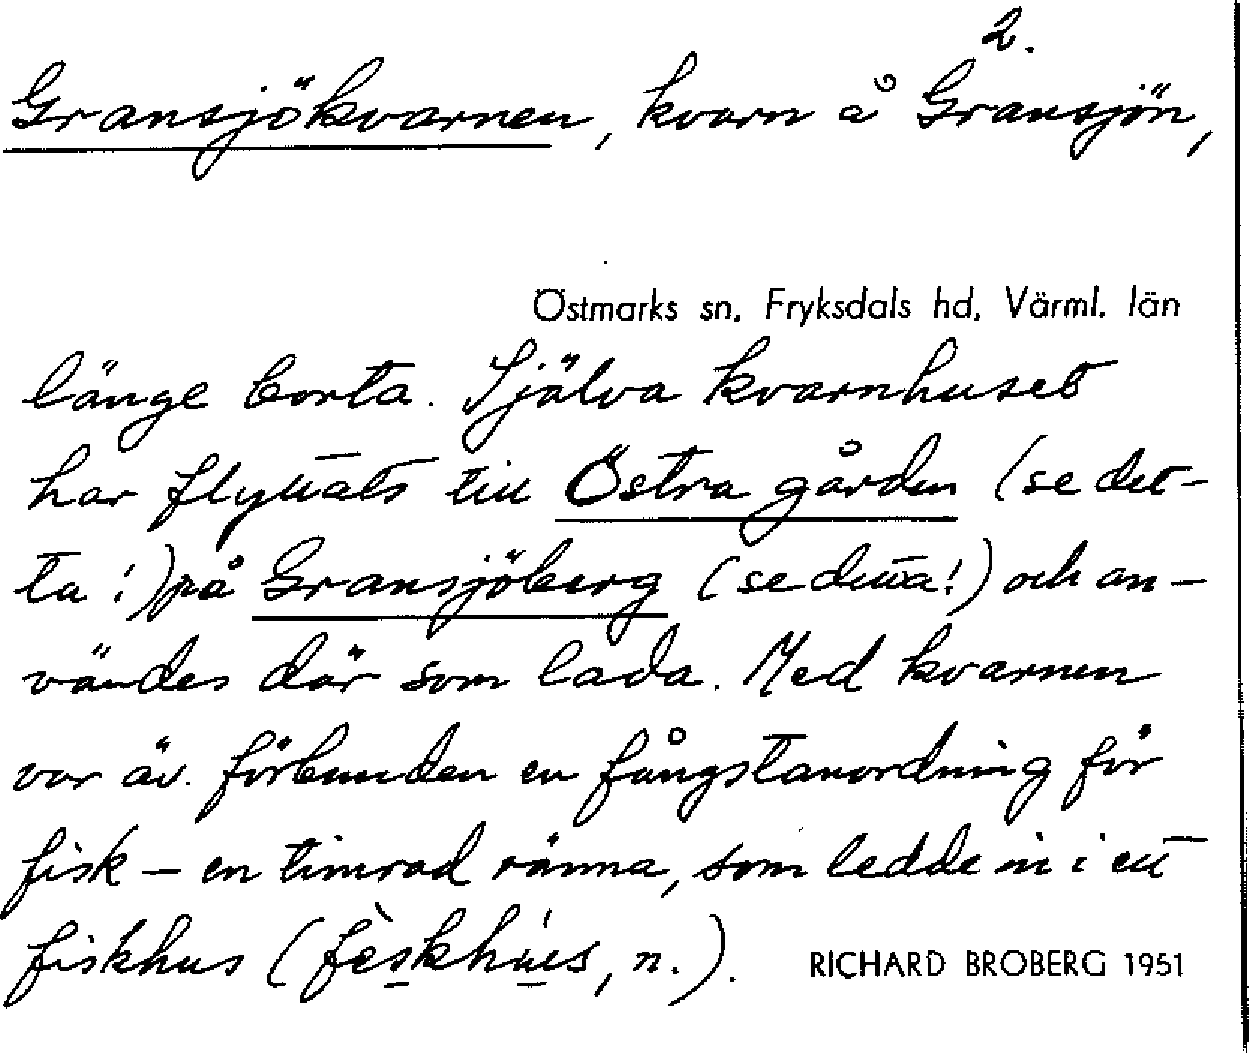 2.
Gransjökvarnen, kvarn å Gransjön,
Östmarks sn, Fryksdals hd, Värml. län
länge borta. Själva kvarnhuset
har flyttats till Östra gården (se det-
ta!) på Gransjöberg (se detta!) och an-
vändes där som lada. Med kvarnen
var äv. förbunden en fångstanordning för
fisk – en timrad ränna, som ledde in i ett
fiskhus (fèskhús, n.). RICHARD BROBERG 1951